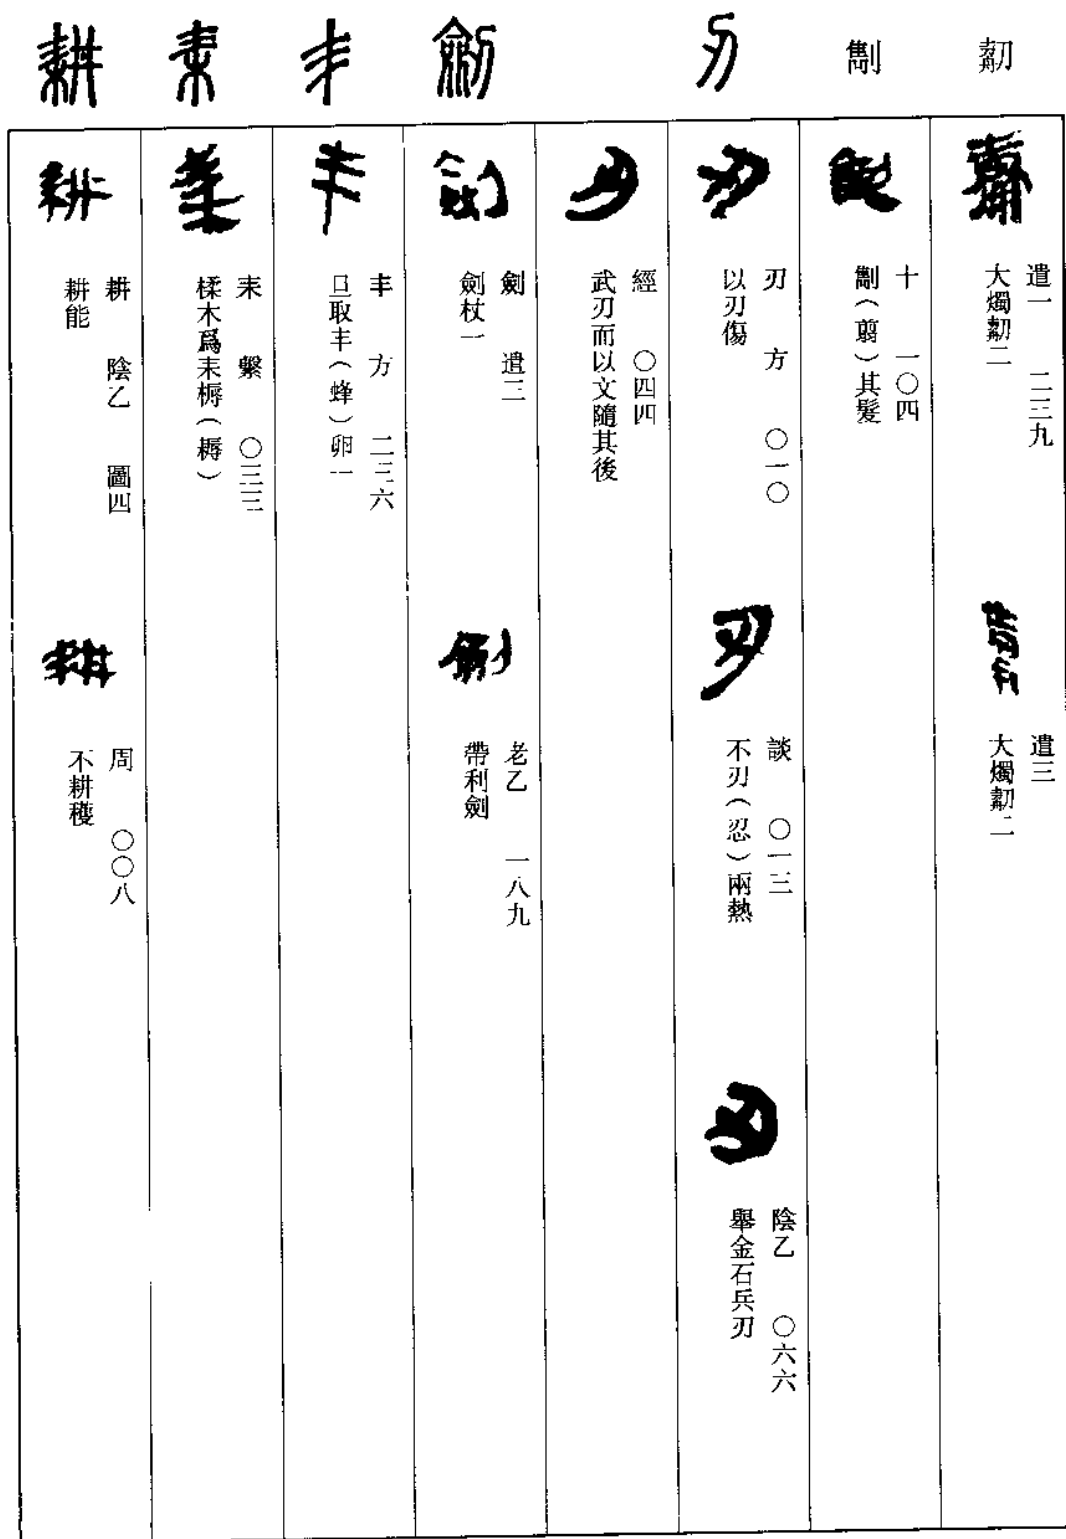 剺
遣一 二三九
大燭剺二
遣三
大燭剺二
劗
十 一〇四
劗（翦）其髮
刃
刃 方 〇一〇
以刃傷
談 〇一三
不刃（忍）兩熱
陰乙 〇六六
舉金石兵刃
經 〇四四
武刃而以文隨其後
劍
劍 遣三
劍杖一
老乙 一八九
帶利劍
丰
丰 方 二三六
旦取丰（蜂）卵一
耒
耒 繫 〇三三
楺木爲耒槈（耨）
耕
耕 陰乙 圖四
耕能
周 〇〇八
不耕穫